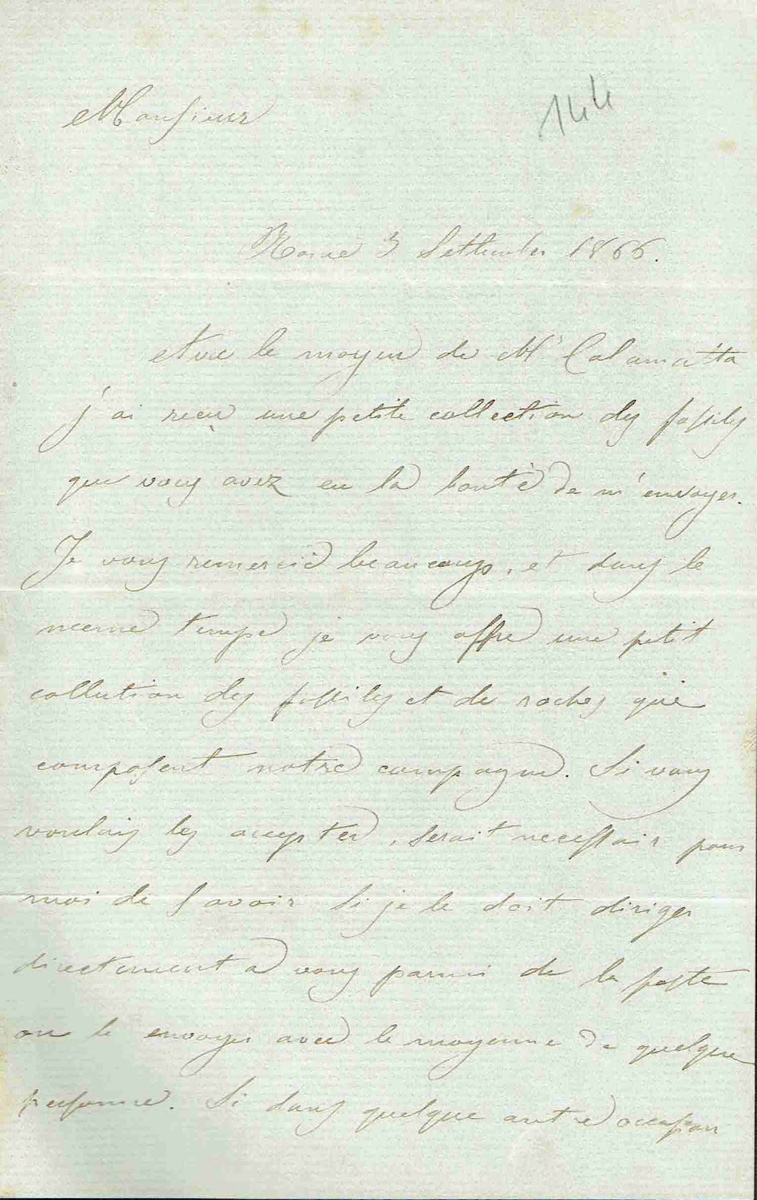 Monsieur
144
Rome 3 Settembre 1866.
Avec le moyen de Mr Calamatta
j'ai reçu une petite collection des fossiles
que vous avez eu la bonté de m'envoyer.
Je vous remercie beaucoup, et dans le
meme temps je vous offre une petit
collection des fossiles et de roches que
composent notre campagne. Si vous
voulais les accepter, serait necessair pour
moi de savoir si je le doit diriger
directement a vous parmi de la poste
ou le envoyer avec le moyenne de quelque
personne. Si dans quelque autre occasion